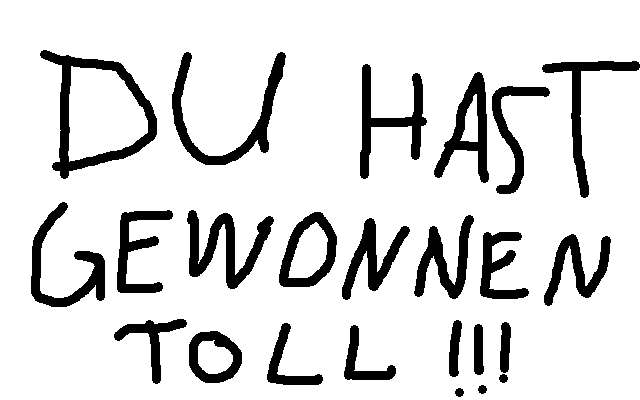 DU HAST
GEWONNEN
TOLL!!!